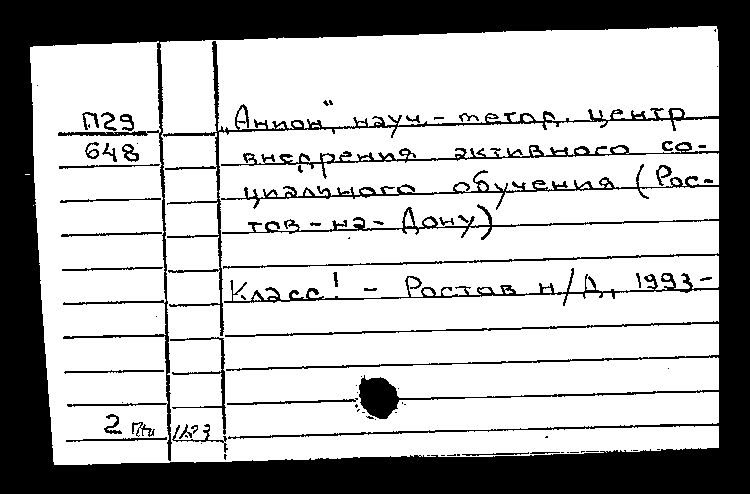 П29
648
„Анион“, науч.-метод. центр
внедрения активного со-
циального обучения (Рос-
тов-на-Дону)
Класс! - Ростов н/Д, 1993-
2